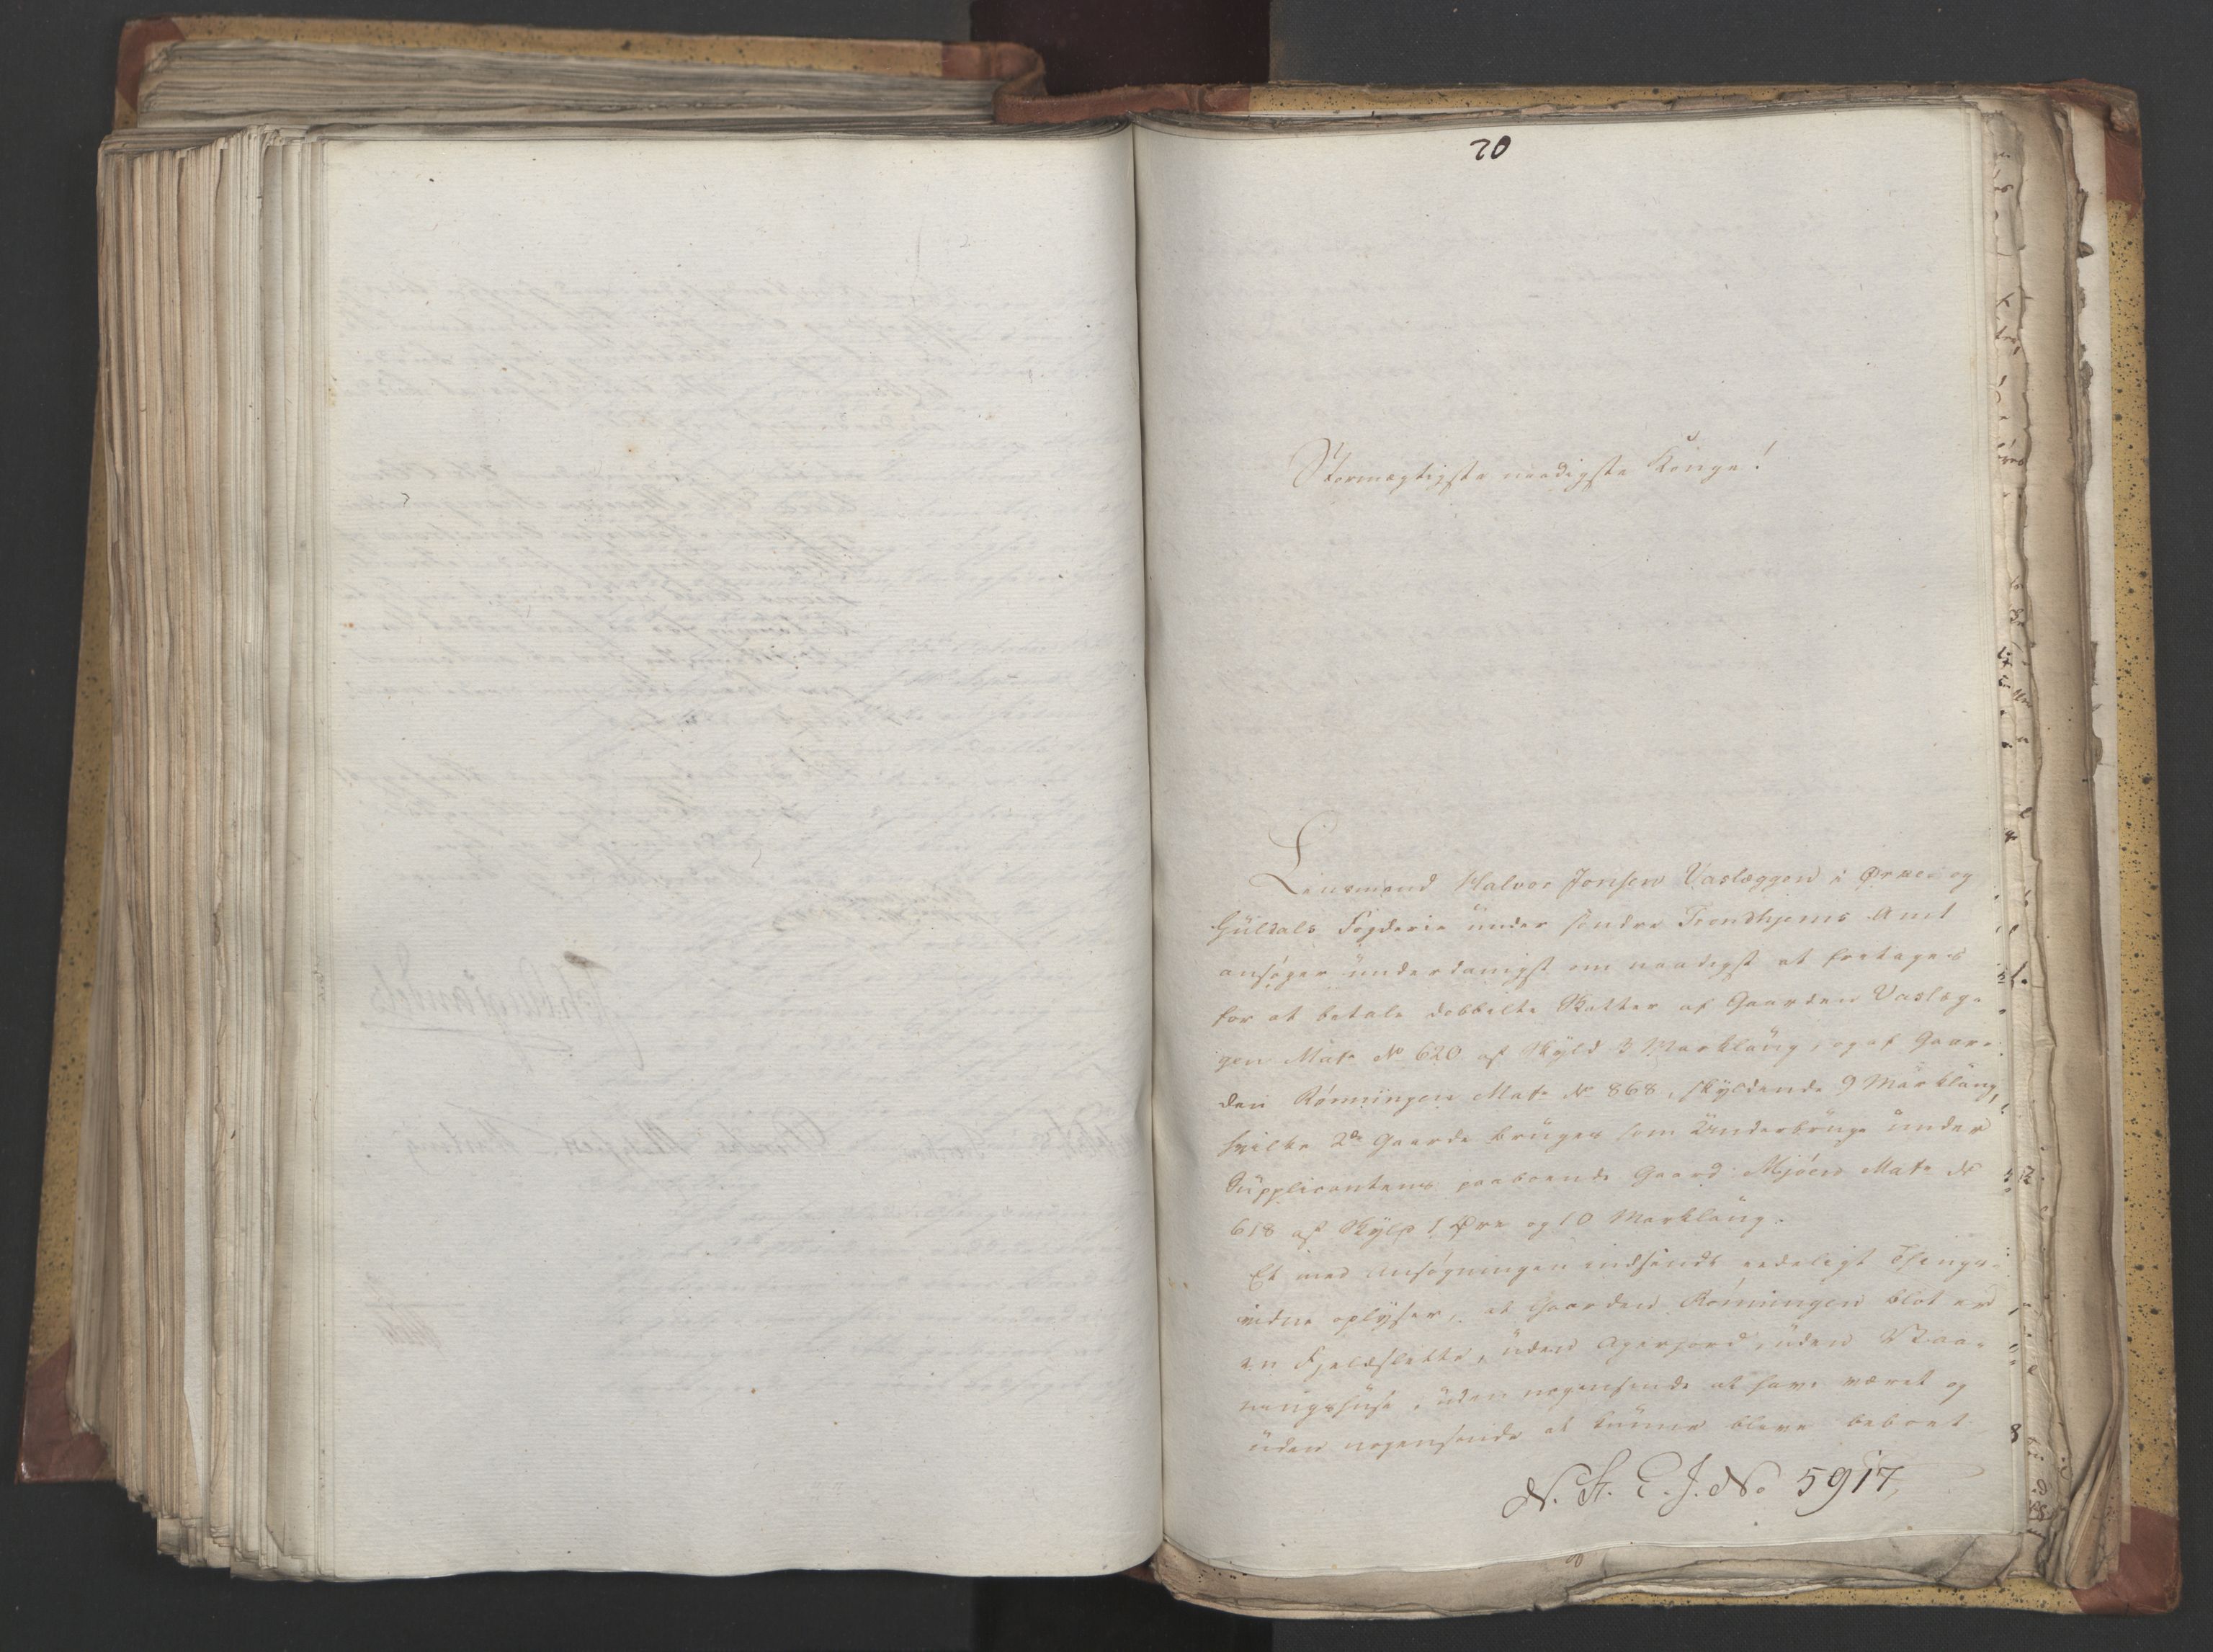 20
Stormægtigste naadigste Konge!
Lensmand Halvor Jonsen Vaslæggen i Ørke og
Güldals Fogderie ünder søndre Trondhjems Amt
ansøger ünderdanigst om naadigst at fritages
for at betale dobbelte Skatter af Gaarden Vaslæg-
gen Mat. No 620 af Skyld 3 Marklaug, og af Gaar-
den Rønningen Mat. No 868, skyldende 9 Marklaug,
hvilke 2de Gaarde brüges som Ünderbrüge ünder
Süpplicantens paaboende Gaard Mjøen Mat. No
618 af Skyld 1 Øre og 10 Marklaug.
Et med Ansøgningen indsendt eedeligt Things-
vidne oplyser, at Gaarden Rønningen blot er
en Fjeldslette, üden Agerjord, üden Vaa-
ningshüse, üden nogensinde at have været og
üden nogensinde at künne blive beboet
N. St. E. J. No 5917,